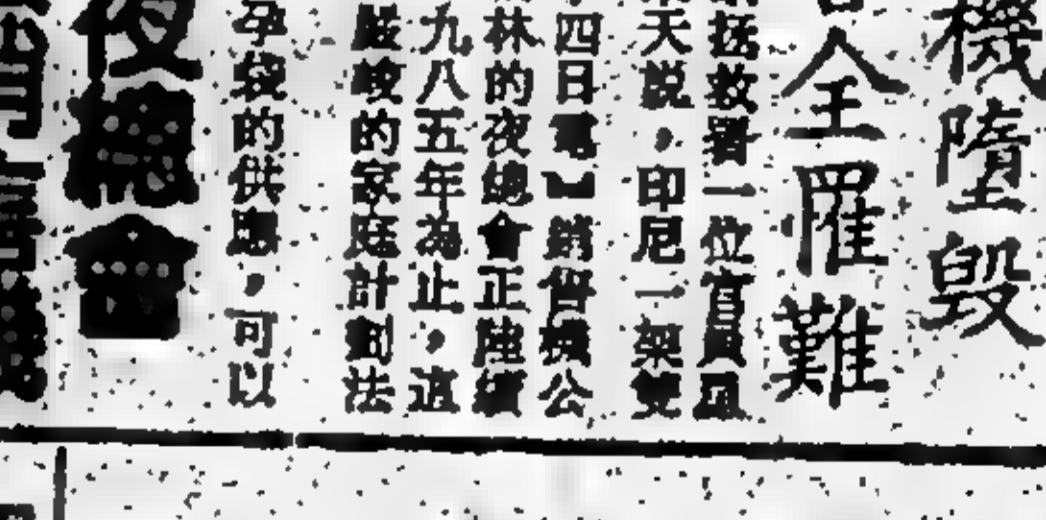 機墮毀
全罹難
拯救署一位官員
天說，印尼一架雙
四日電】銷售公
林的夜總會正陸續
九八五年為止，這
嚴峻的家庭計劃法
孕袋的供應，可以
夜總會